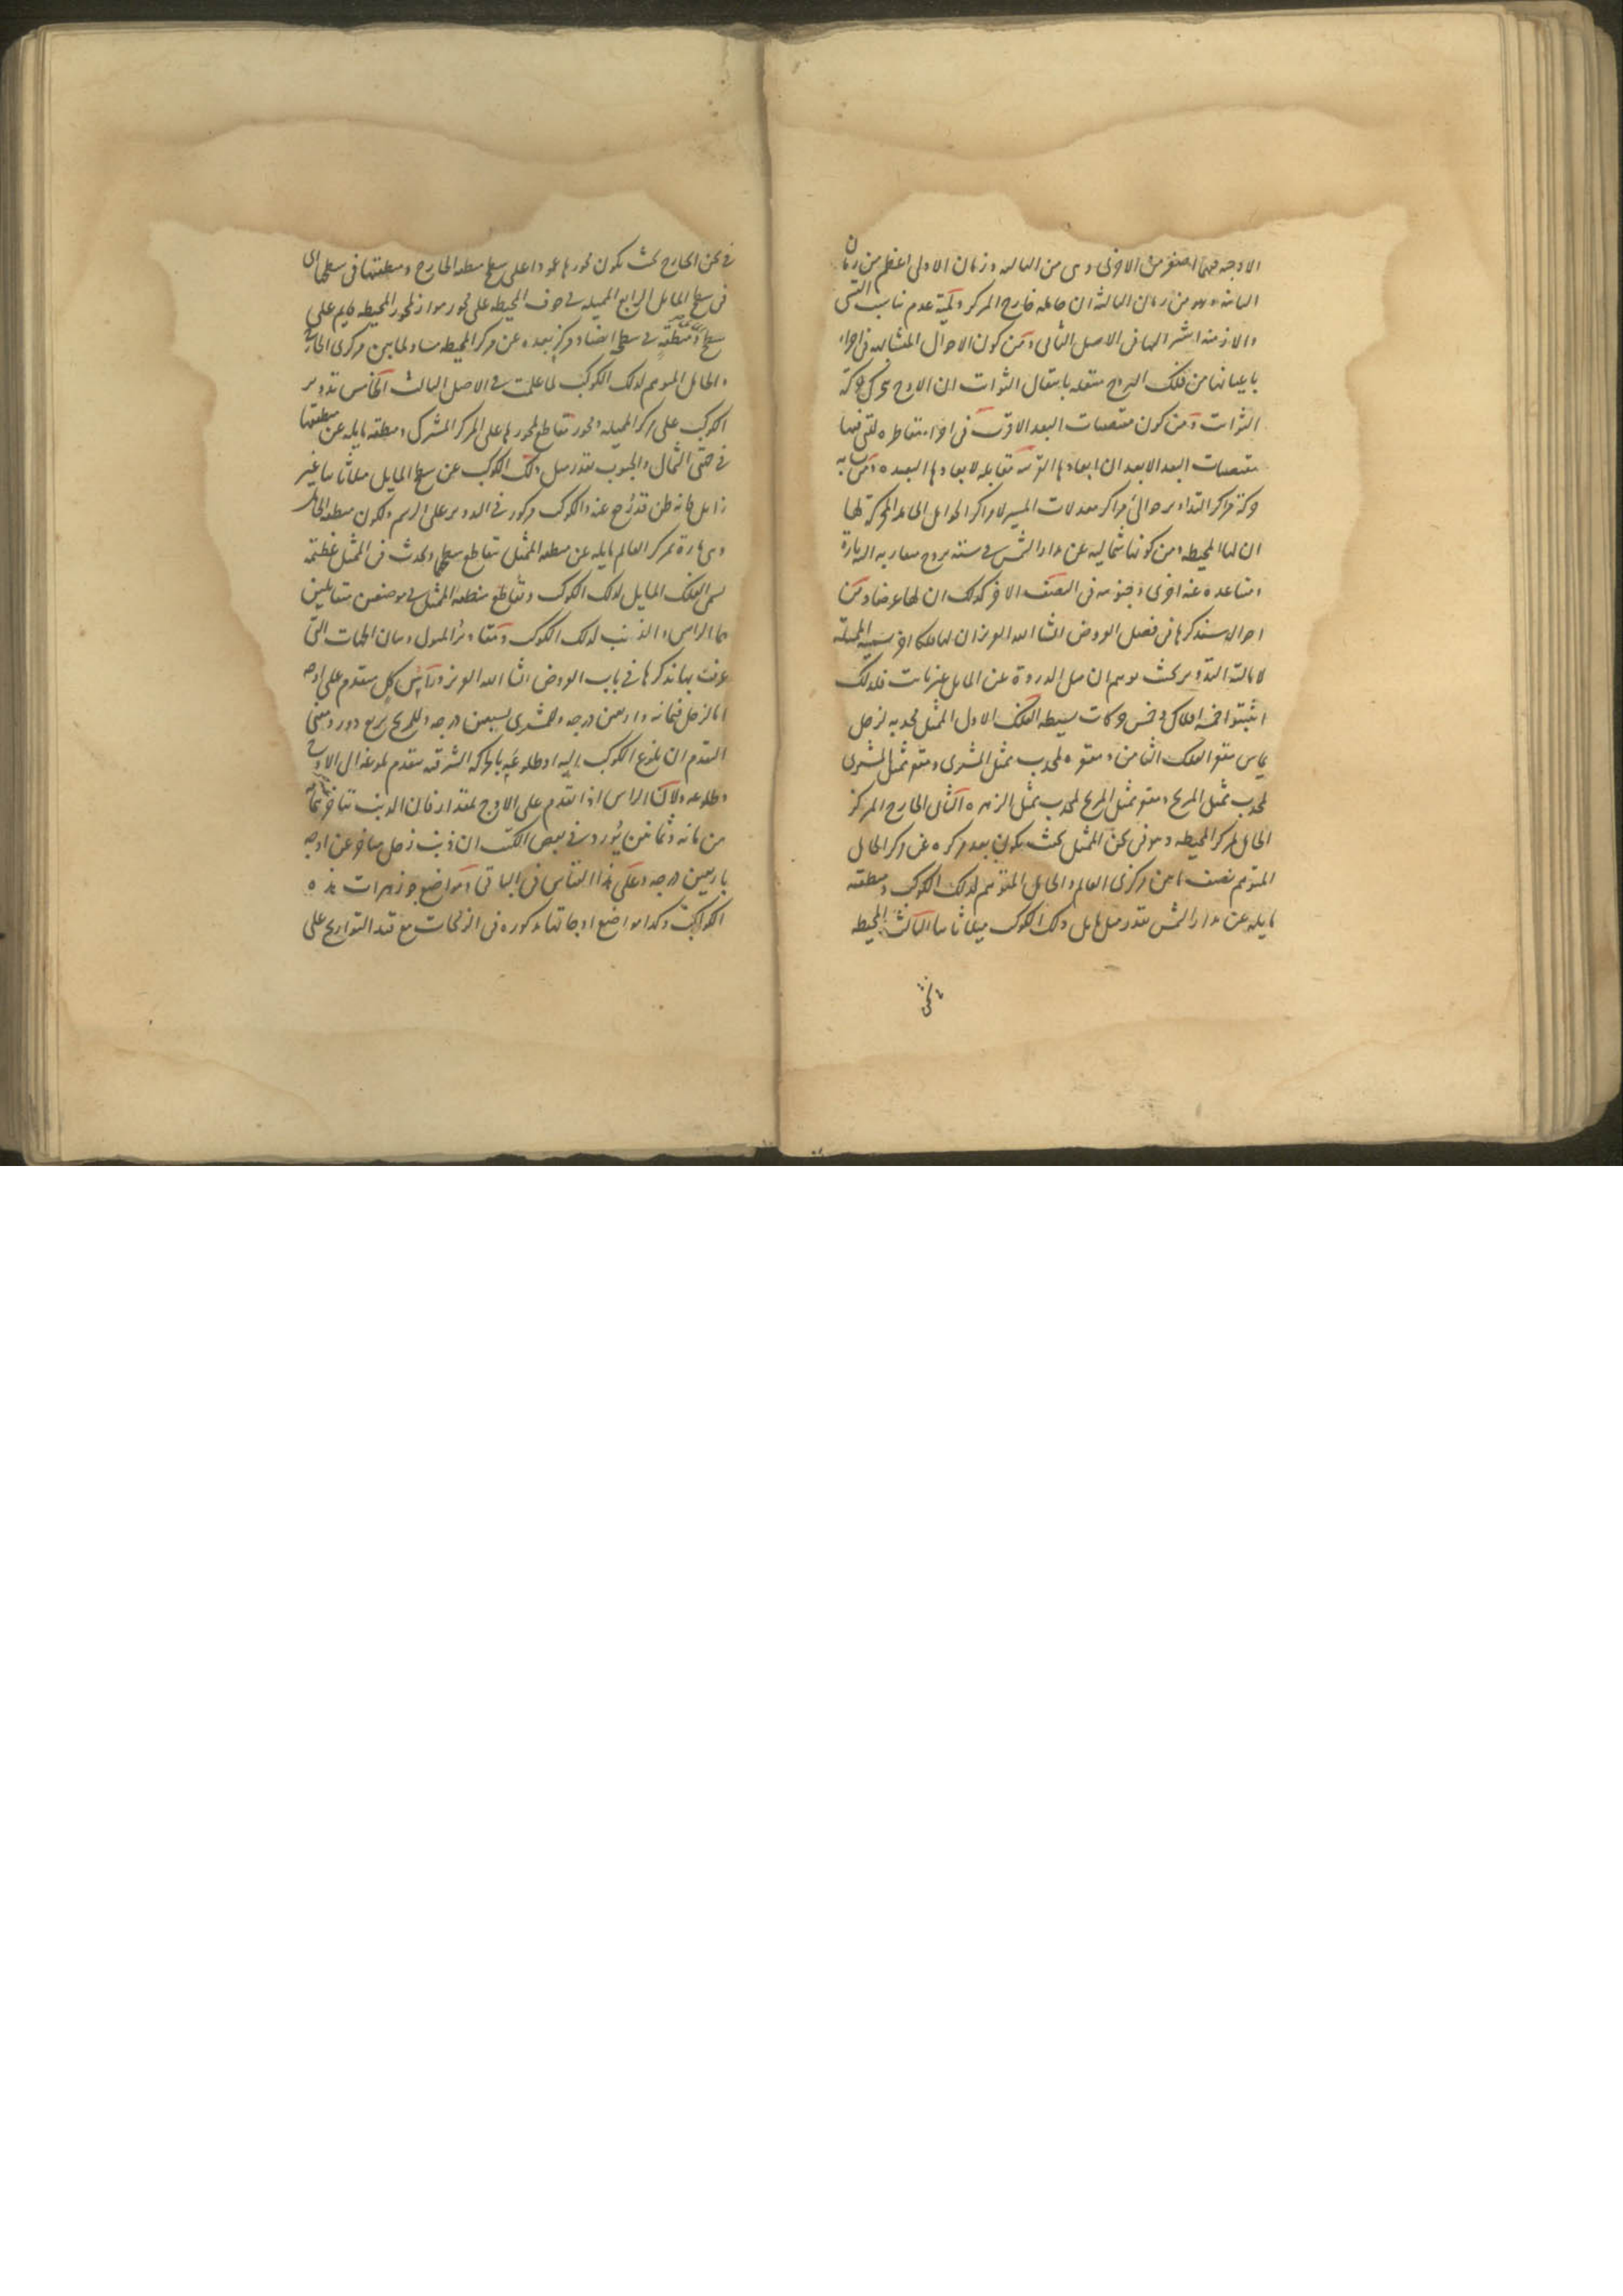 الاوجه فيها اصغر من الاخرى وهى من الثالثه وزمان الاولى اعظم من زمان
الثانيه وهو من زمان الثالثة ان حامله خارج المركز ولميّة عدم تناسب القسى
والازمنه اشير اليها فى الاصل الثانى ومن كون الاحوال المتشابهه فى اجزاء
باعيانها من فلك البروج منتقله بانتقال الثوابت ان الاوج يتحرك حركة
الثوابت ومن كون منتصفات البعد الاقرب فى اجزاء متقاطره لتى فيها
منتصفات البعد الابعد ان ابعادها القريبه مقابله لابعادها البعيده ومن تشابه
حركة مراكز التداوير حوالى مراكز معدلات المسير لا مراكز الحوامل الحامله المحركة لها
ان لها المحيطه ومن كونها شماليه عن مدار الشمس فى سته بروج متقاربه الزيارة
ومتباعده عنه اخرى وجنوبيه فى النصف الاخر كذلك ان لها عرضا ومن
احوال سنذكرها فى فصل العروض انشا الله العزيز ان لها فلكا اخر سميه المميلة
لامالته التدوير بحيث يوهم ان ميل الذروة عن المايل غير ثابت فلذلك
اثبتوا خمسة افلاك وخمس حركات بسيطه الفلك الاول الممثل محدبه لزحل
يماس مقعر الفلك الثامن ومقعره لمحدب ممثل المشترى ومقعر ممثل المشترى
لمحدب ممثل المريخ ومقعر ممثل المريخ لمحدب ممثل الزهره الثانى الخارج المركز
الحامل لمركز المحيطه وهو فى ثخن الممثل بحيث يكون بعد مركزه عن مركز الحامل
المتوهم نصف ما بين مركزى العالم والحامل المتوهم لذلك الكوكب ومنطقته
مايله عن مدار الشمس بقدر ميل مايل ذلك الكوكب ميلا ثابتا الثالث المحيطه
فى ثخن الخارج بحيث يكون محورها عمودا على سطح منطقه الخارج ومنطقتها فى سطحها اى
فى سطح المايل الرابع المميله فى جوف المحيطه على محور مواز لمحور المحيطه قايم على
سطح منطقته فى سطحها ايضا ومركزه بعده عن مركز المحيطه مساو لما بين مركزى الخارج
والحامل المتوهم لذلك الكوكب لما علمت فى الاصل الثالث الخامس تدوير
الكوكب على مركز المميله ومحوره مقاطع لمحورها على المركز المشترك ومنطقته مايله عن منطقتها
فى جهتى الشمال والجنوب بقدر ميل ذلك الكوكب عن سطح المايل ميلا ثابتا غير
زايل كما ظن قدح عنه والكوكب مركوز فى التدوير على الرسم ولكون منطقه الحامل
وهى مارة بمركز العالم مايله عن منطقه الممثل تقاطع سطحها ويحدث فى الممثل عظيمة
تسمى الفلك المايل لذلك الكوكب وتقاطع منطقه الممثل فى موضعين متقابلين
هما الراس والذنب لذلك الكوكب ومقادير الميول وبيان الجهات التى
عرفت بها نذكرها فى باب العروض انشا الله العزيز وراس كل متقدم على اوجه
اما لزحل فبمائه واربعين درجه وللمشترى بسبعين درجه وللمريخ بربع دور ومعنى
التقدم ان بلوغ الكوكب اليه او طلوعه بالحركه الشرقيه متقدم لبلوغه الى الاوج
وطلوعه ولان الراس اذا تقدم على الاوج بمقدار فان الذنب يتاخر بتمامه
من مائه وثمانين يورد فى بعض الكتب ان ذنب زحل متاخر عن اوجه
باربعين درجه وعلى هذا القياس فى الباقى ومواضع جوزهرات هذه
الكواكب وكذا مواضع اوجاتها مذكوره فى الزيجات مع قيد التواريخ على